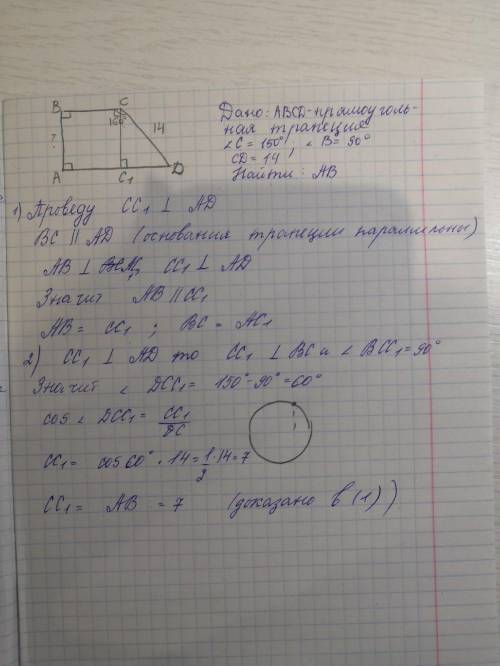 B C
150°
14
?
A C₁ D
Дано: ABCD-прямоуголь-
ная трапеция
∠C = 150° ; ∠B = 90°
CD = 14
Найти: AB
1) Проведу CC₁ ⊥ AD
BC || AD (основания трапеции параллельны)
AB ⊥ CC₁ ⊥ AD
Значит AB || CC₁
AB = CC₁ ; BC = AC₁
2) CC₁ ⊥ AD то CC₁ ⊥ BC и ∠ BCC₁ = 90°
Значит ∠ DCC₁ = 150° - 90° = 60°
cos ∠ DCC₁ = CC₁/DC
CC₁ = cos 60° · 14 = 1/2 · 14 = 7
CC₁ = AB = 7 (доказано в (1))